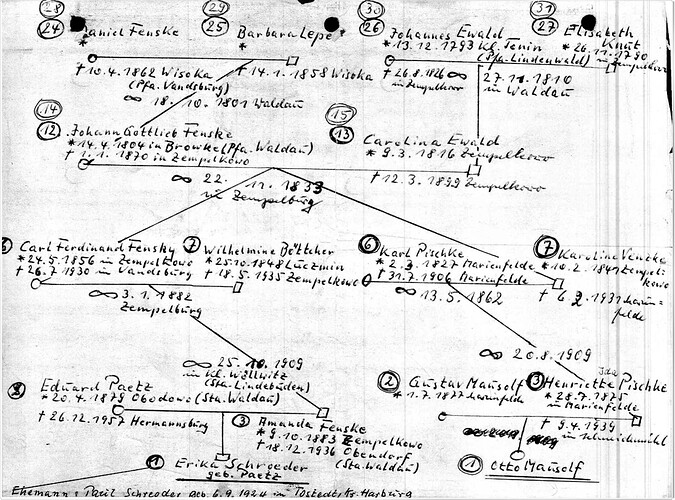 28
29
30
31
24
Daniel Fenske
*
25
Barbara Lepe
*
26
Johannes Ewald
* 13.12.1793 Kl. Jenin
(Pfa. Lindenwald)
27
Elisabeth
Knut
* 26.11.1790
in Zempelkowo
† 10.4.1862 Wisoka
(Pfa. Vandsburg)
† 14.1.1858 Wisoka
∞ 18. 10. 1801 Waldau
† 26.8.1826
in Zempelkowo
∞
27.11.1810
in Waldau
14
15
12
Johann Gottlieb Fenske
* 14.4.1804 in Browke (Pfa. Waldau)
† 1.1.1870 in Zempelkowo
13
Carolina Ewald
* 9.3.1816 Zempelkowo
† 12.3.1899 Zempelkowo
∞ 22. 11. 1833
in Zempelburg
Carl Ferdinand Fensky
* 24.5.1856 in Zempelkowo
† 26.7.1930 in Vandsburg
7
Wilhelmine Böttcher
* 25.10.1848 Luczmin
† 18.5.1935 Zempelkowo
∞ 3. 1. 1882
Zempelburg
6
Karl Pischke
* 2.3.1827 Marienfelde
† 31.7.1906 Marienfelde
7
Karoline Venzke
* 10.2.1841 Zempel-
kowo
† 6.2.1931
felde
∞ 13.5.1862
∞ 25. 10. 1909
in Kl. Wöllwitz
(Sta. Lindebuden)
∞ 20.8.1909
2
Eduard Paetz
* 20.4.1879 Obodowo (Sta. Waldau)
† 26.12.1957 Hermannsburg
3
Amanda Fenske
* 9.10.1883 Zempelkowo
† 18.12.1936 Obendorf
(Sta. Waldau)
2
Gustav Mausolf
* 1.7.1877 Marienfelde
3
Ida
Henriette Pischke
* 28.7.1875
in Marienfelde
† 9.4.1939
in Schneidemühl
1
Erika Schroeder
geb. Paetz
1
Otto Mausolf
Ehemann: Paul Schroeder geb. 6.9.1924 in Tostedt, Kr. Harburg